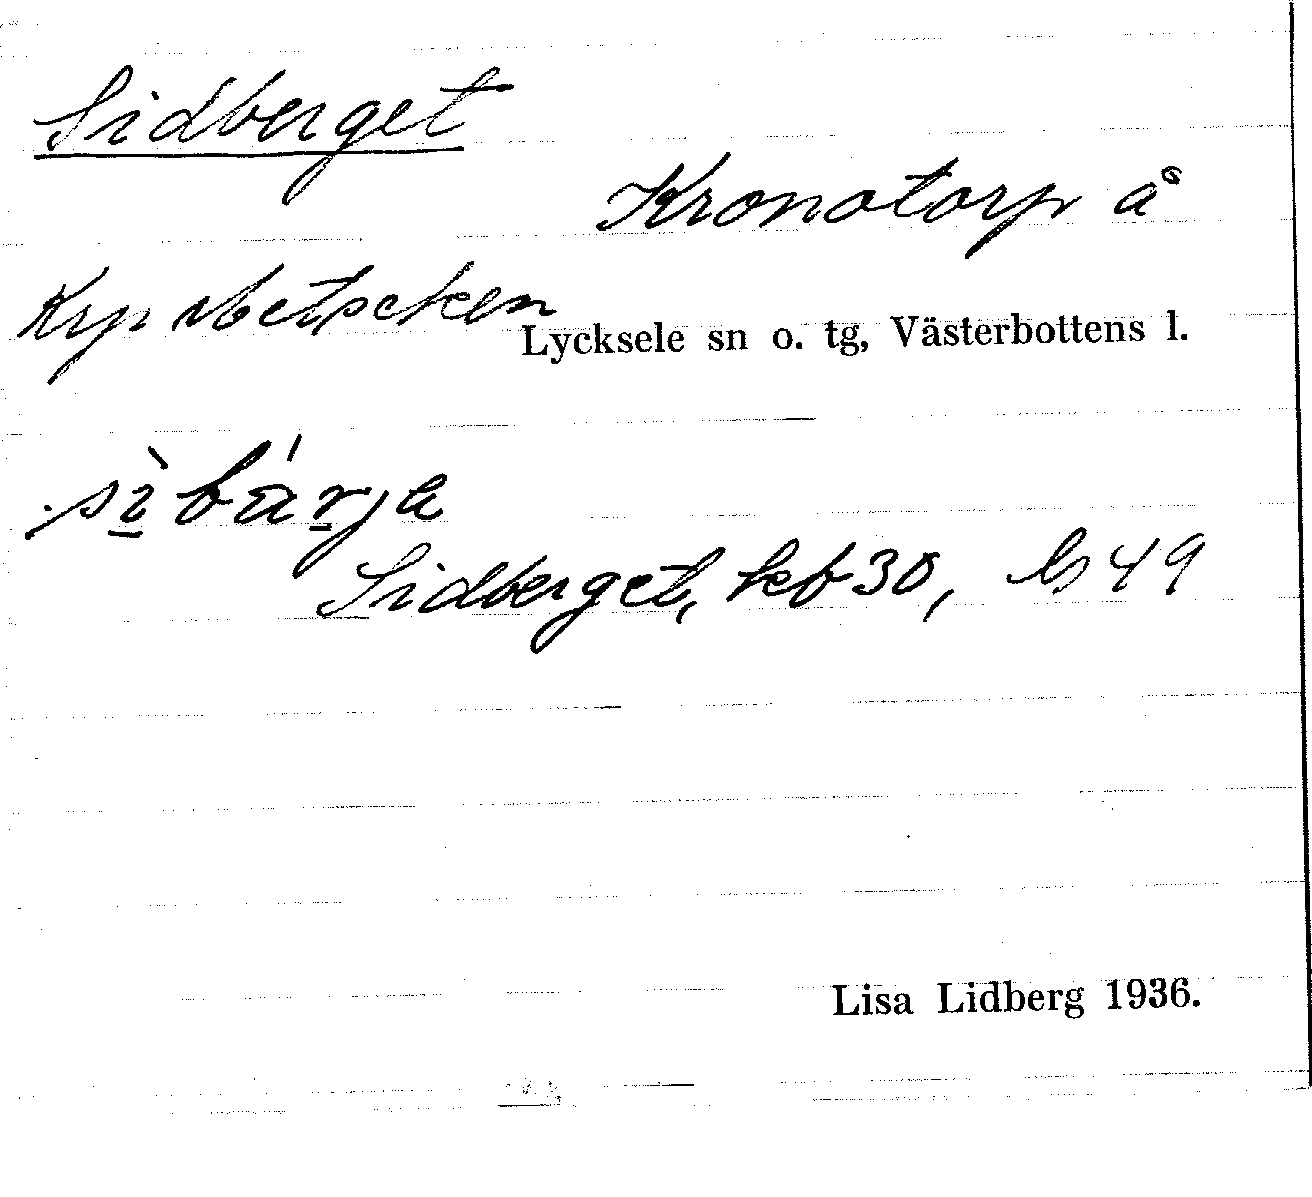 Sidberget
Kronotorp å
Krp Metseken
Lycksele sn o. tg, Västerbottens l.
sìbárja
Sidberget, keb 30, bs 49
Lisa Lidberg 1936.